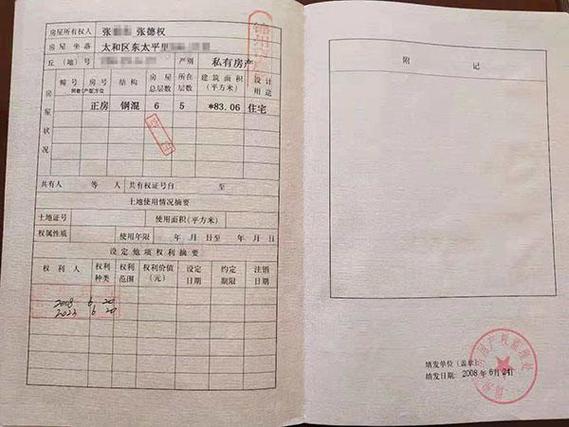 房屋所有权人 张 张德权
房屋坐落 太和区东太平里
丘(地)号 产别 私有房产
房屋状况
幢号 房号 结构 房屋总层数 所在层数 建筑面积(平方米) 设计用途
正房 钢混 6 5 *83.06 住宅
共有人 等 人 共有权证号自 至
土地使用情况摘要
土地证号 使用面积(平方米)
权属性质 使用年限 年 月 日至 年 月 日
设定他项权利摘要
权利人 权利种类 权利范围 权利价值(元) 设定日期 约定期限 注销日期
2008 6 20
2023 6 20
附 记
填发单位(盖章)
填发日期: 2008年6月24日